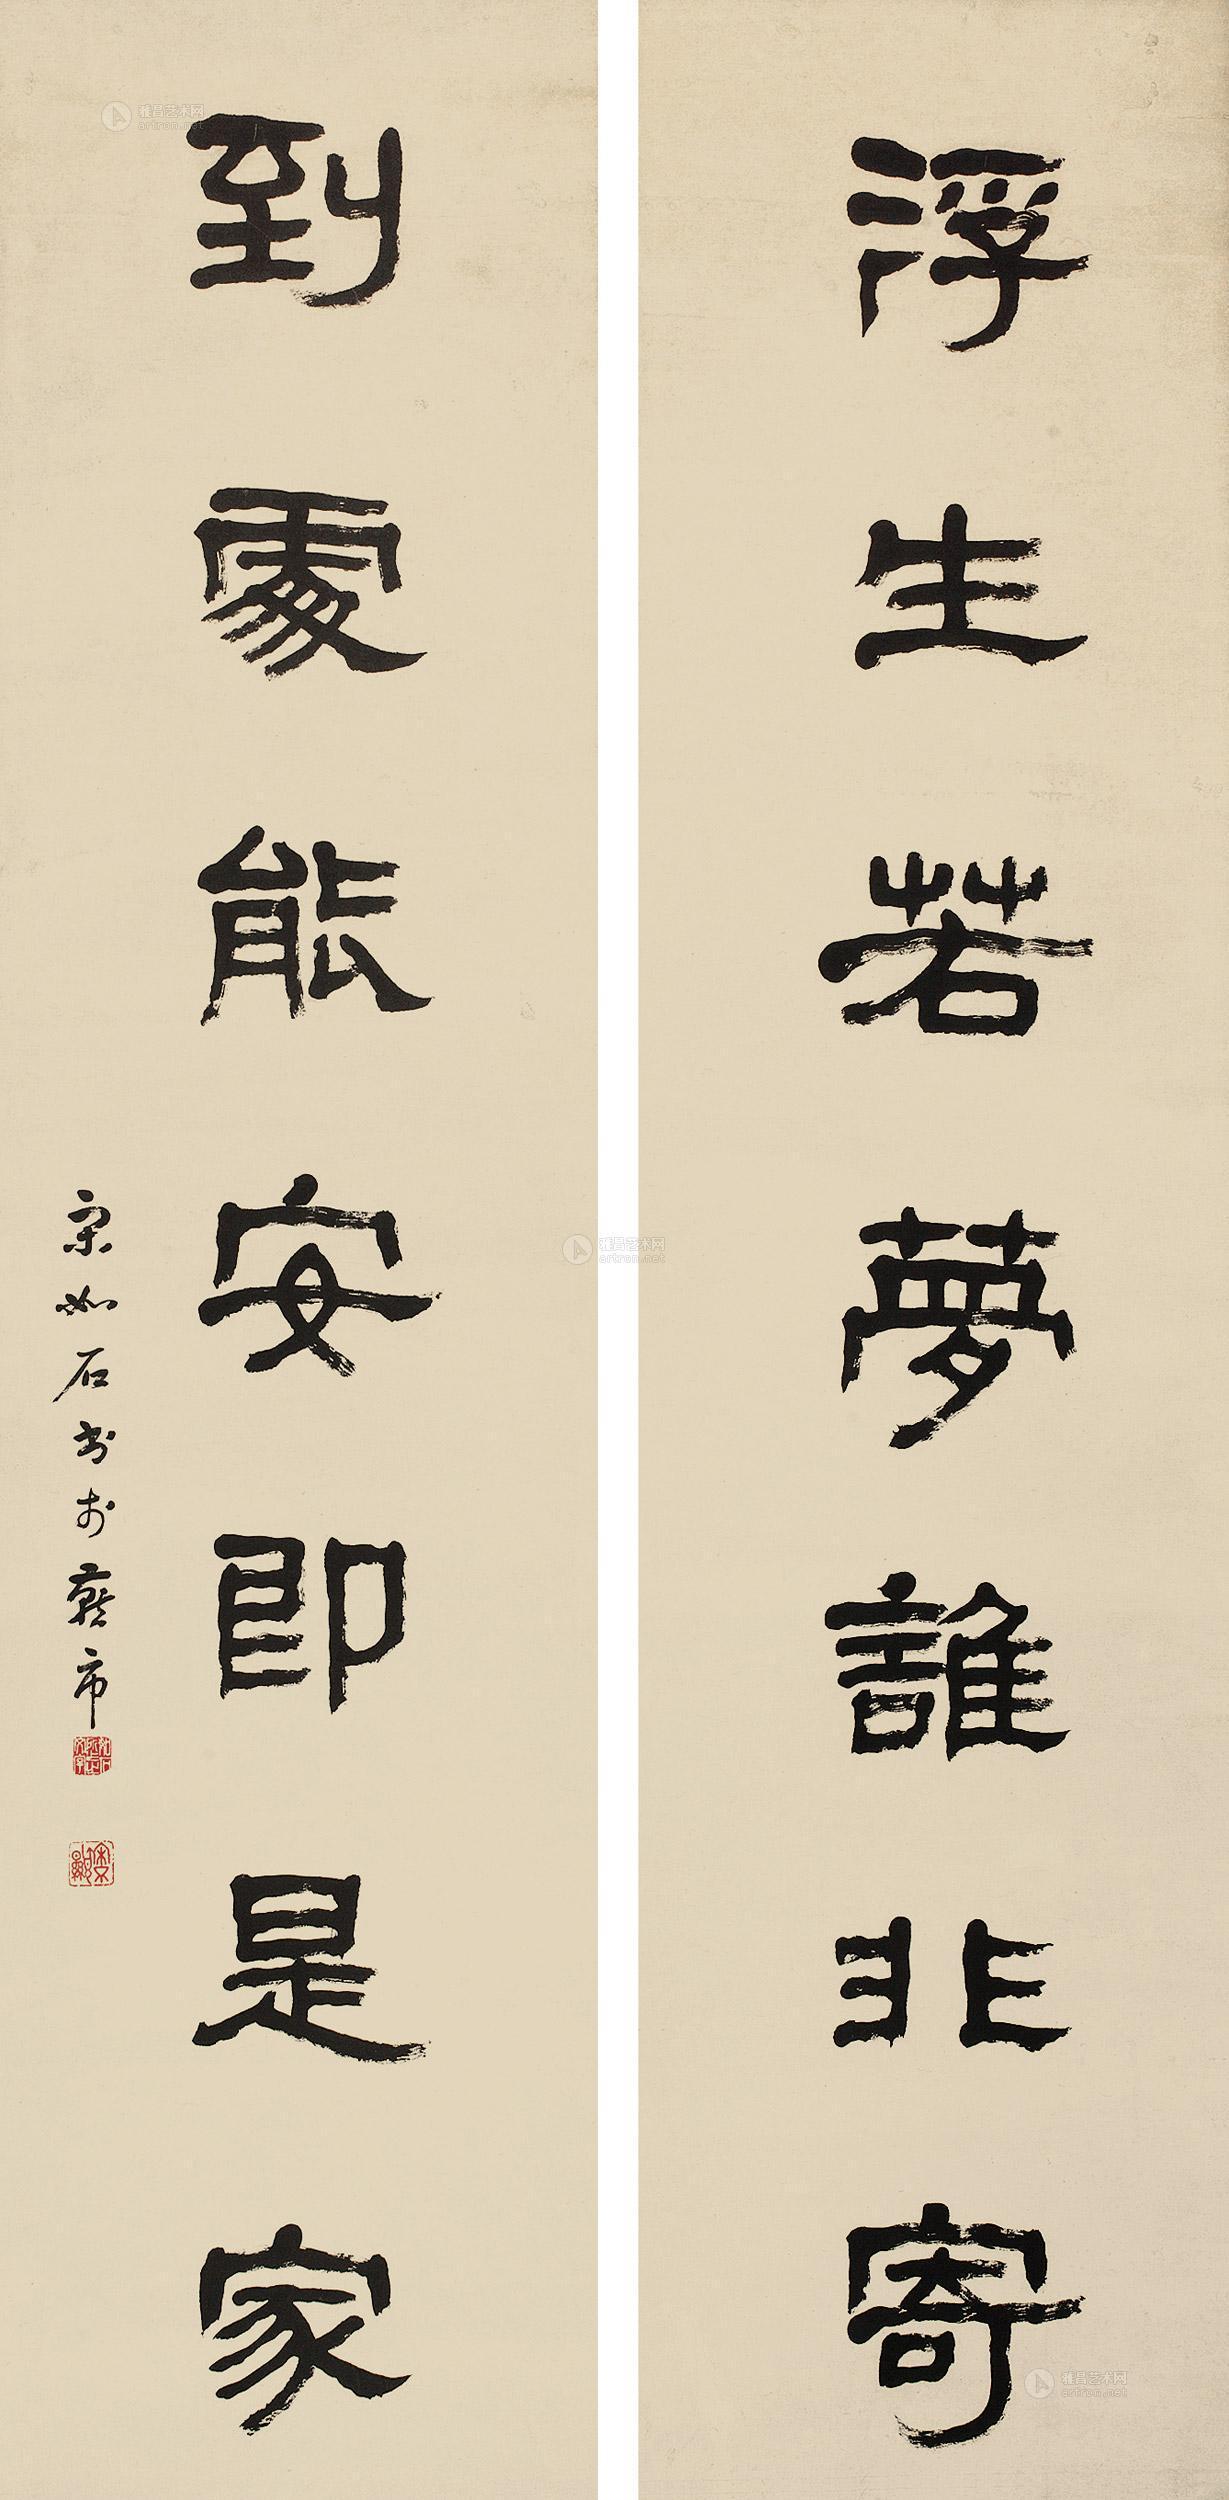 浮生若夢誰非寄
到處能安即是家
宋如石書於燕市
雅昌艺术网
artron.net
雅昌艺术网
artron.net
雅昌艺术网
artron.net